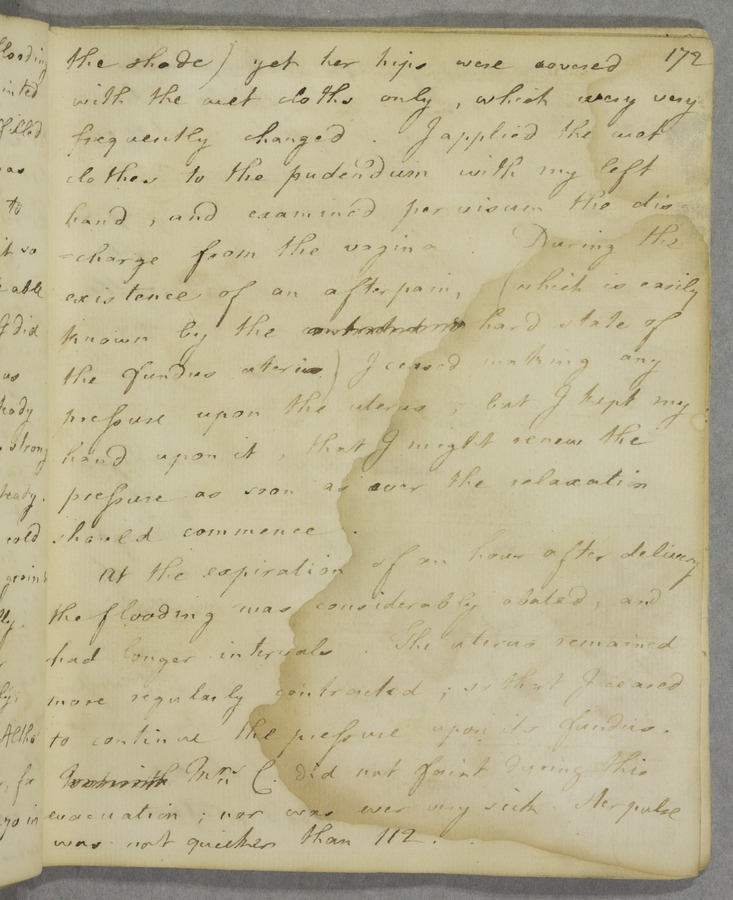 172
the shade) yet her hips were covered
with the wet cloths only, which were very
frequently changed. I applied the wet
clothes to the pudendum with my left
hand, and examined per visum the dis
=charge from the vagina. During the
existence of an afterpain, (which is easily
known by the hard state of
the fundus uteri) I ceased making any
pressure upon the uterus; but I kept my
hand upon it, that I might renew the
pressure as soon as ever the relaxation
should commence.
At the expiration of an hour after delivery
the flooding was considerably abated, and
had longer intervals. The uterus remained
more regularly contracted; so that I ceased
to continue the pressure upon its fundus.
Mrs C. did not faint during this
evacuation; nor was ever very sick. Her pulse
was not quicker than 112.